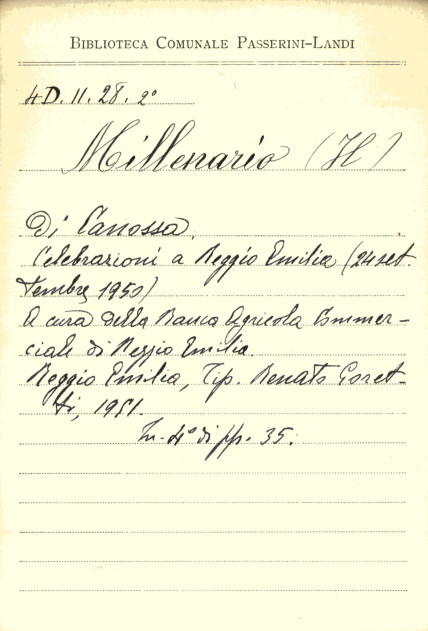 BIBLIOTECA COMUNALE PASSERINI-LANDI
4D. 11. 28. 2º
Millenario (Il)
Di Canossa.
Celebrazioni a Reggio Emilia (24 set-
tembre 1950)
A cura della Banca Agricola Commer-
ciale di Reggio Emilia.
Reggio Emilia, Tip. Renato Goret-
ti, 1951.
In-4º di pp. 35.